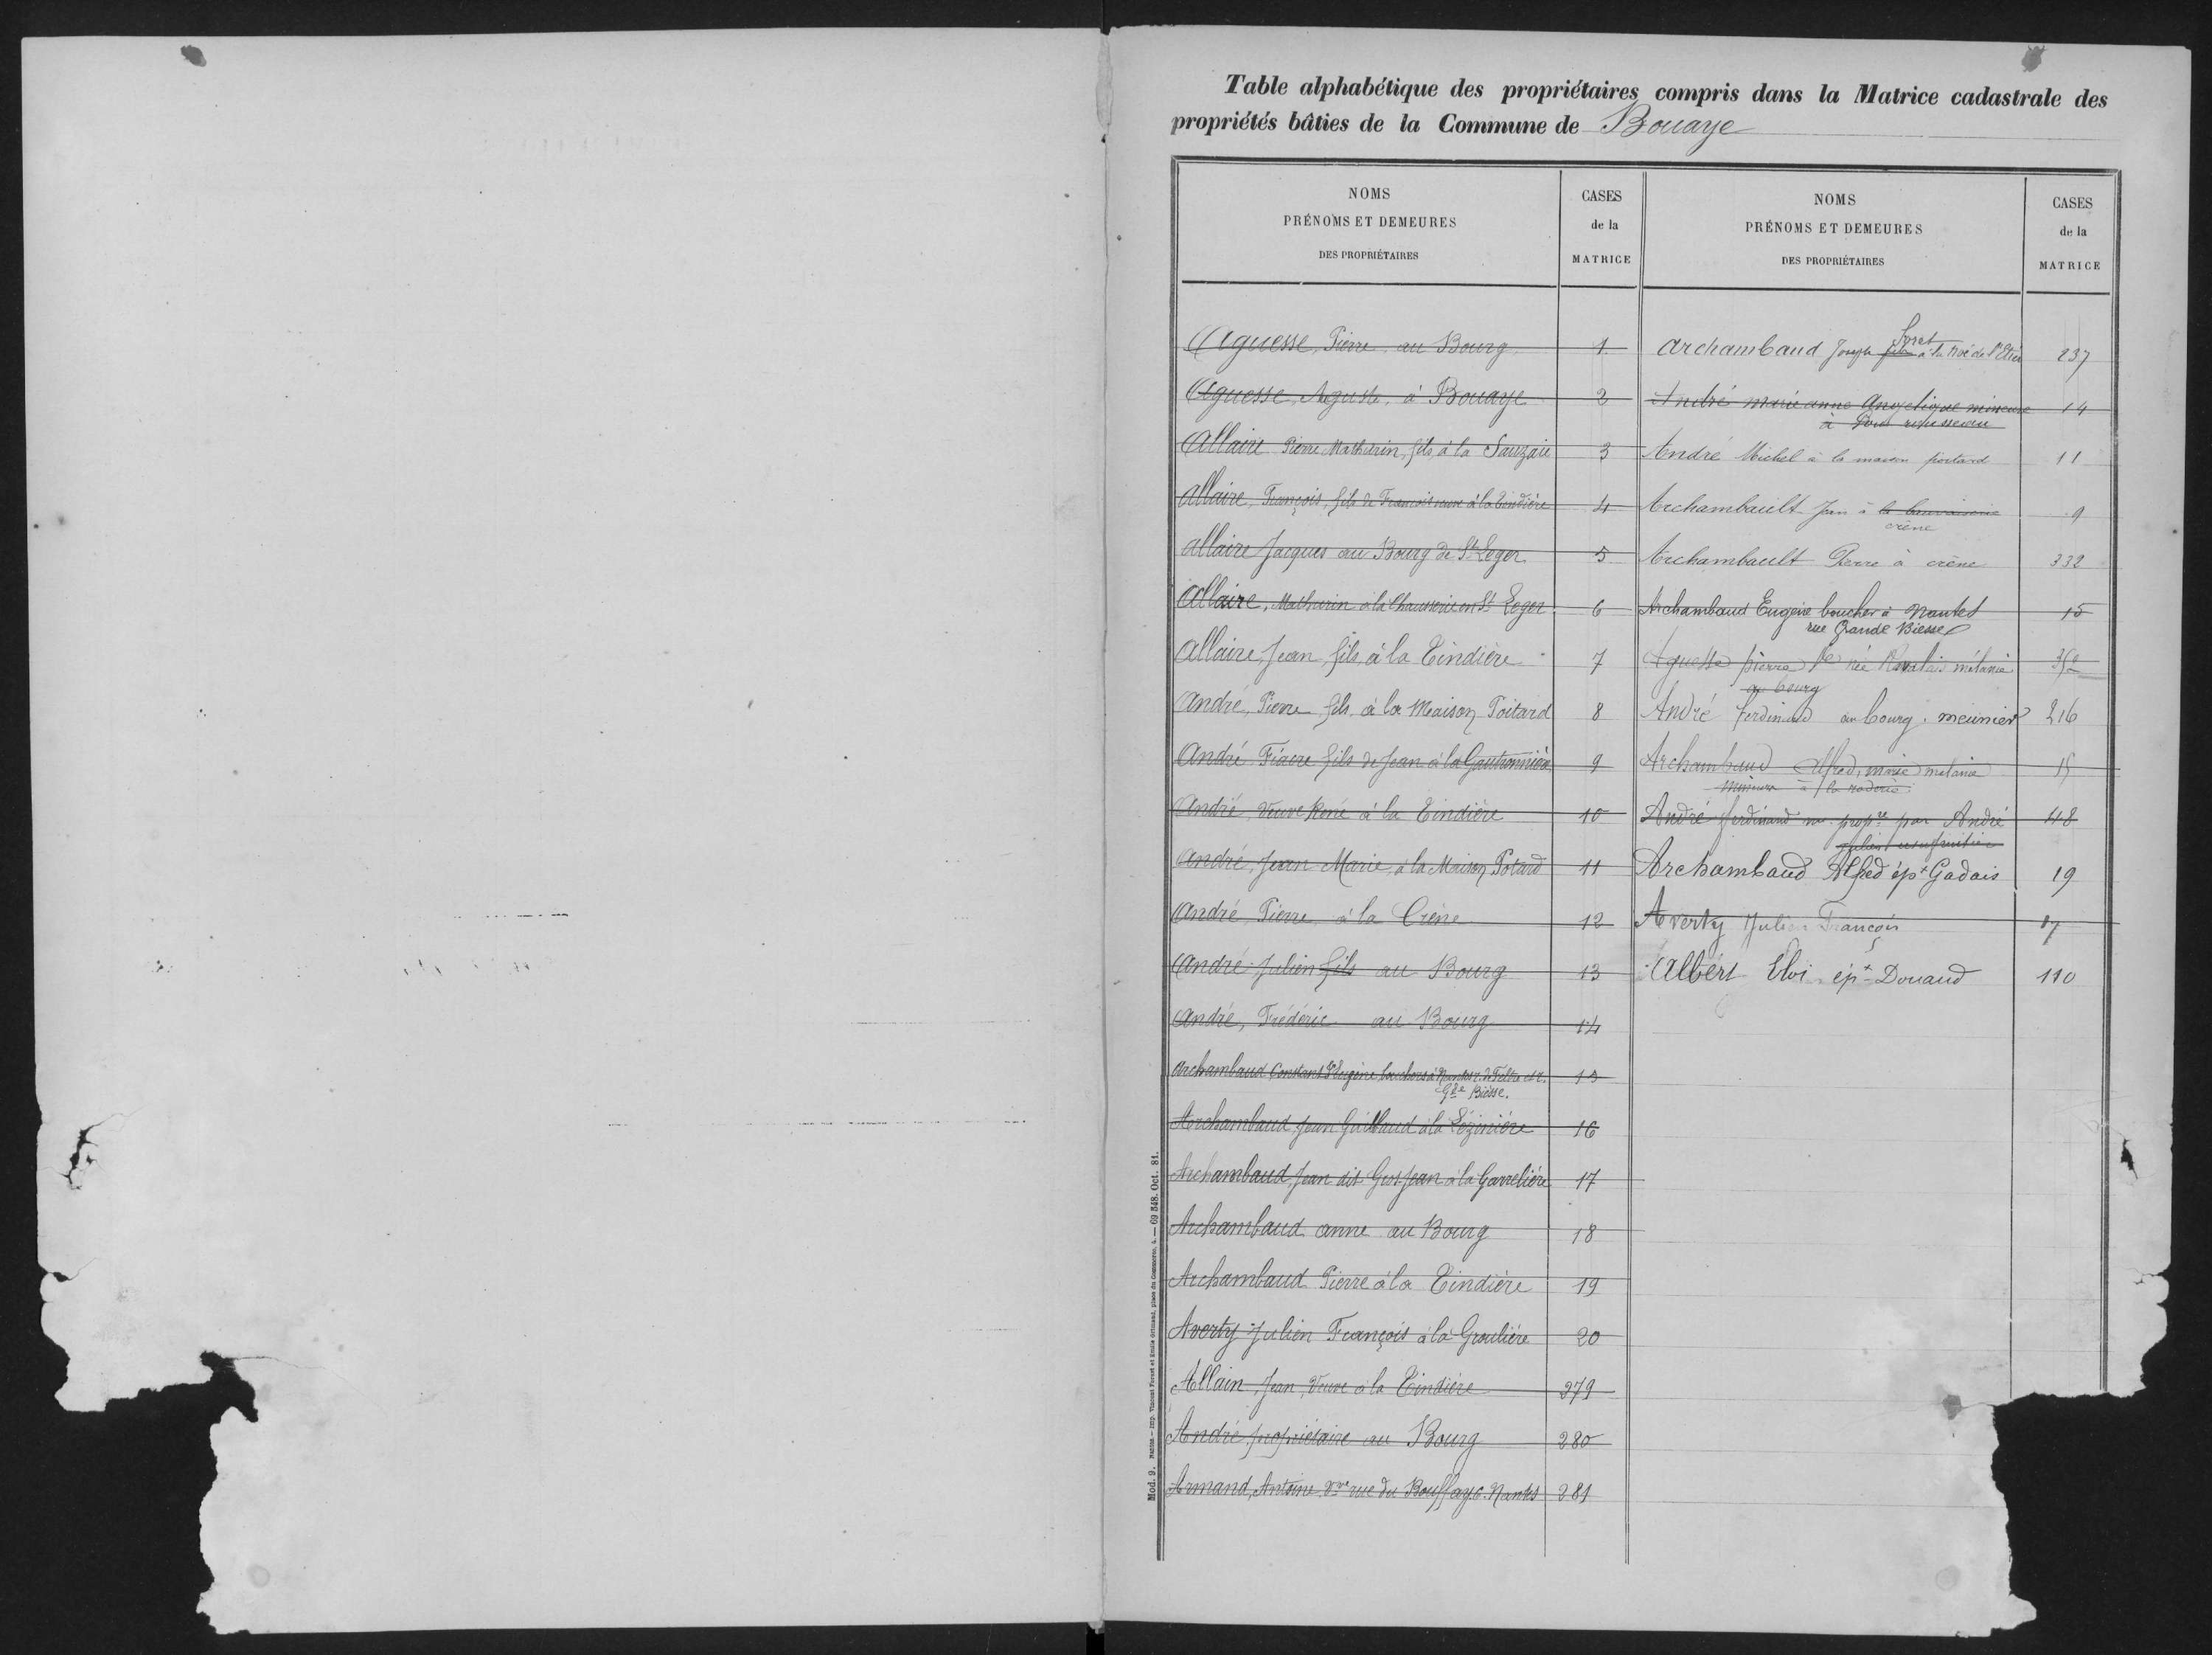 Table alphabétique des propriétaires compris dans la Matrice cadastrale des
propriétés bâties de la Commune de Bouaye
NOMS
PRÉNOMS ET DEMEURES
DES PROPRIÉTAIRES
CASES
de la
MATRICE
Aguesse, Pierre au Bourg 1
Aguesse, Auguste, à Bouaye 2
Allaire Pierre Mathurin, fils, à la Sauzaie 3
Allaire, François, fils de François à la Tindière 4
allaire Jacques au Bourg de St Leger 5
Allaire, Mathurin à la en St Leger 6
allaire, Jean, fils, à la Tindière 7
André, Pierre, fils, à la Maison Poitard 8
André Fiacre fils de Jean à la 9
André, Veuve René à la Tindière 10
André, Jean Marie, à la Maison Potard 11
André, Pierre à la Crêne 12
André Julien fils au Bourg 13
André, Frédéric au Bourg 14
Archambaud Constant Eugène bouchers à Nantes r. de Feltre et r.
Gde Biesse. 15
Archambaud Jean à la 16
Archambaud, Jean dit Gros Jean à la Garrelière 17
Archambaud anne au Bourg 18
Archambaud Pierre à la Tindière 19
Averty Julien François à la Groulière 20
Allain, Jean, Veuve à la Tindière 279
André propriétaire au Bourg 280
Armand, Antoine Vve rue du Bouffay 6 Nantes 281
NOMS
PRÉNOMS ET DEMEURES
DES PROPRIÉTAIRES
CASES
de la
MATRICE
Archambaud Joseph à la 237
André marie anne Angelique mineure 14
à
André Michel à la maison poitard 11
Archambault Jean à la 9
crêne
Archambault Pierre à crêne 332
Archambaud Eugène boucher à Nantes 15
rue Grande Biesse
Aguesse pierre Ve née mélanie 352
au bourg
André ferdinand au bourg. meunier 216
Archambaud Alfred, marie mélanie 15
mineurs à la
André ferdinand nu propre par André 48
julien usufruitier
Archambaud Alfred épx Gadais 19
Averty Julien François 87
Albert Eloi épx Douaud 110
Mod. 9. Nantes — Imp. Vincent Forest et Emile Grimaud, place du Commerce, 4. — 69 348. Oct. 81.